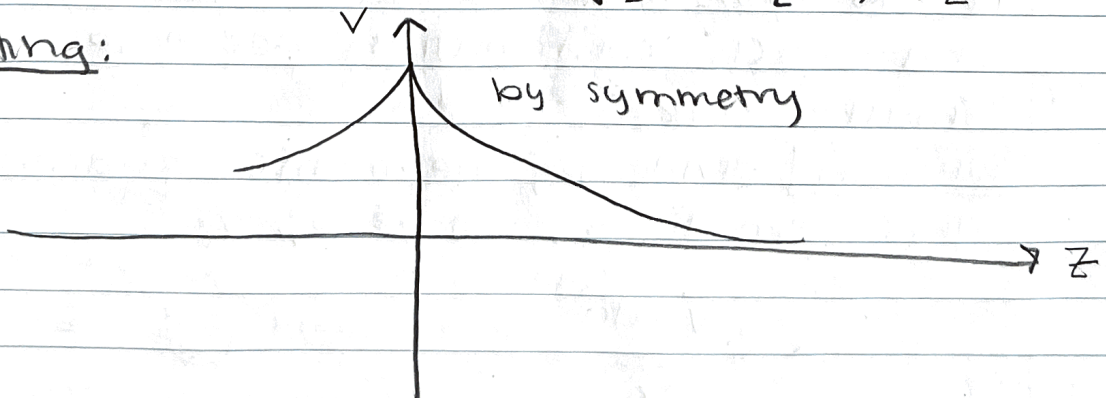 V
by symmetry
Z